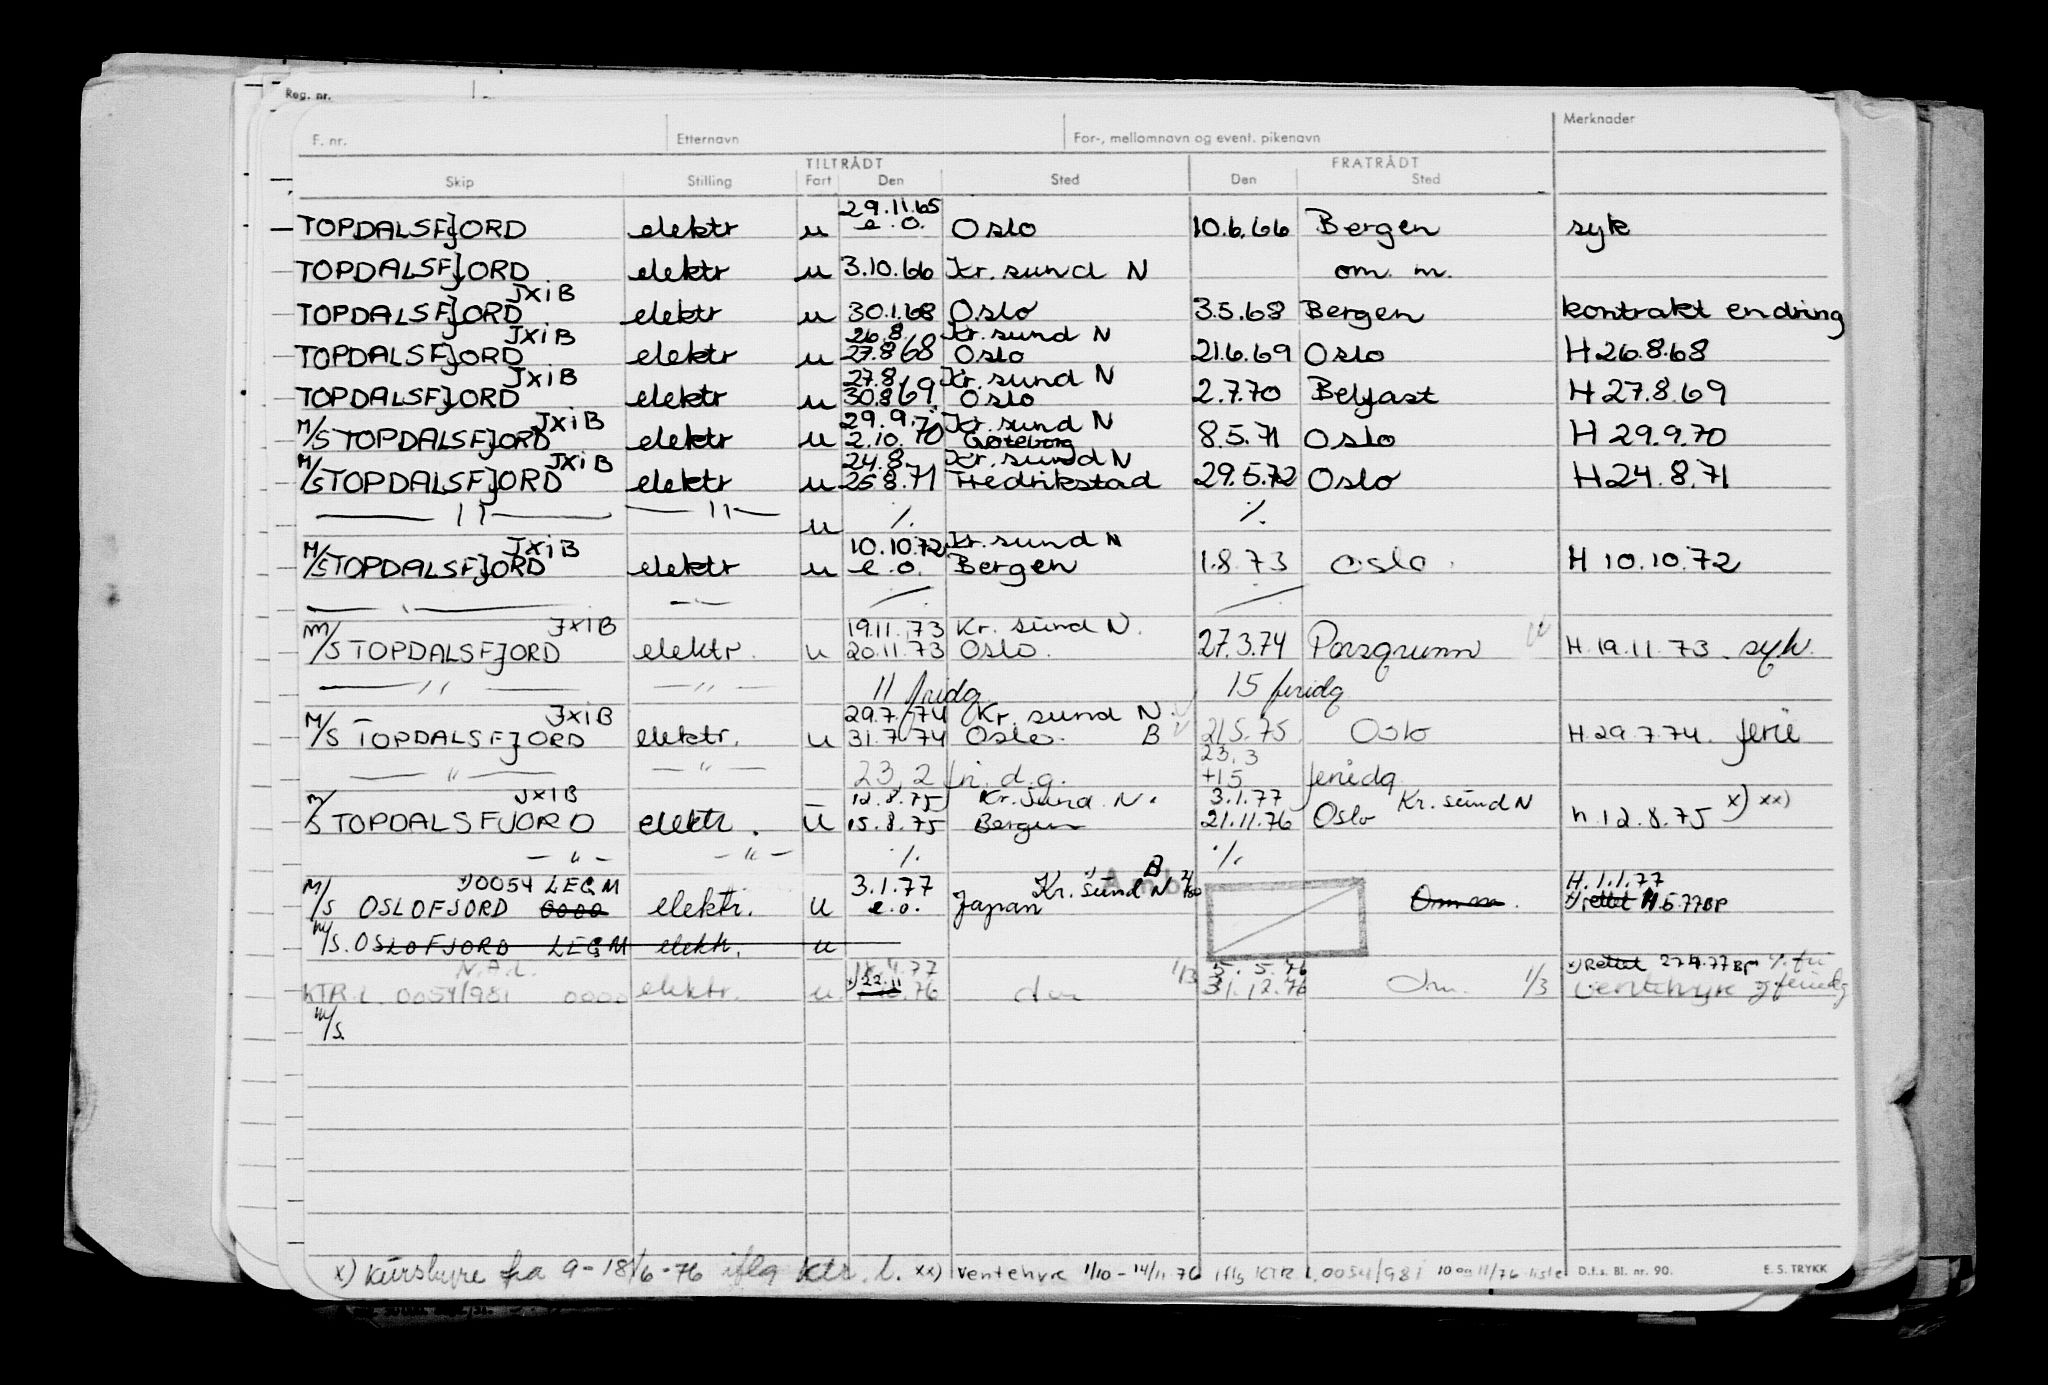 Reg. nr.
F. nr. Etternavn For-, mellomnavn og event. pikenavn Merknader
TILTRÅDT FRATRÅDT
Skip Stilling Fart Den Sted Den Sted
29.11.65
TOPDALSFJORD elektr u e.o. Oslo 10.6.66 Bergen syk
TOPDALSFJORD elektr u 3.10.66 Kr. sund N om. m.
JXiB
TOPDALSFJORD elektr u 30.1.68 Oslo 3.5.68 Bergen kontrakt endring
JXiB 26.8. Kr. sund N
TOPDALSFJORD elektr u 27.8 68 Oslo 21.6.69 Oslo H 26.8.68
JXiB 27.8. Kr. sund N
TOPDALSFJORD elektr u 30.8 69. Oslo 2.7.70 Belfast H 27.8.69
JXiB 29.9. Kr. sund N
M/S TOPDALSFJORD elektr u 2.10.70 Göteborg 8.5.71 Oslo H 29.9.70
JXiB 24.8. Kr. sund N
M/S TOPDALSFJORD elektr u 25.8.71 Fredrikstad 29.5.72 Oslo H 24.8.71
— 11 — — 11 — u ./. ./.
JXiB 10.10.72 Kr. sund N
M/S TOPDALSFJORD elektr u e.o. Bergen 1.8.73 Oslo. H 10.10.72
— " — — " — ./. ./.
JXiB 19.11.73 Kr. sund N.
M/S TOPDALSFJORD elektr. u 20.11.73 Oslo. 27.3.74 Porsgrunn H. 19.11.73. syk.
— 11 — — 11 — 11 fridg 15 feridg
JXiB 29.7.74 Kr. sund N.
M/S TOPDALSFJORD elektr. u 31.7.74 Oslo. B 21.5.75 Oslo H.29.7.74. ferie
23,3
— " — — " — 23,2 fri.d.g. +15 feridg
JXIB 12.8.75 Kr. Sund. N. 3.1.77 Kr. sund N
M/S TOPDALSFJORD elektr. u 15.8.75 Bergen 21.11.76 Oslo h.12.8.75 x) xx)
— " — — " — ./. ./.
0054 LEGM 3.1.77 Kr. sund N B H. 1.1.77
M/S OSLOFJORD 0000 elektr. u e.o. Japan Om m. rettet
M/S. OSLOFJORD LEGM elektr. u
N.A.L. 5.5.76 Rettet 27.4.77 BP
KTR.L. 0054/981 0000 elektr. u 22.11 .76 1/13 31.12.76 Om. 1/3 Ventehyre feridg
M/S.
x) Kurshyre fra 9-18/6-76 iflg ktr. l. xx) Ventehyre 1/10-14/11 76 iflg KTR L. 0054/981 10 og 11/76 liste D.f.s. Bl. nr. 90. E. S. TRYKK